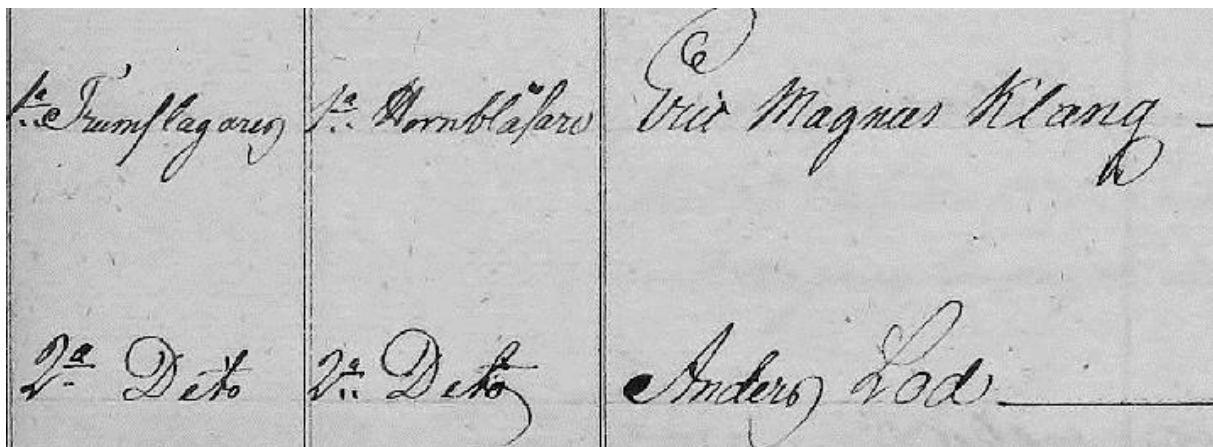 1:a Trumslagaren 1:a Hornblåsare Eric Magnus Klang
2:a Deto 2:a Deto Anders Lod